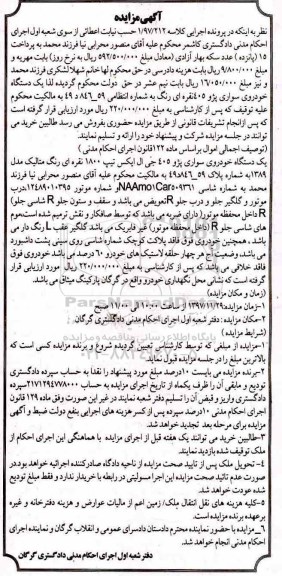 آگهی مزایده
نظر به اینکه در پرونده اجرایی کلاسه ۱/۹۷/۲۱۲ حسب نیابت اعطائی از سوی شعبه اول اجرای
احکام مدنی دادگستری کاشمر محکوم علیه آقای منصور محرابی نیا فرزند محمد به پرداخت
۱۵ (پانزده) عدد سکه بهار آزادی (معادل مبلغ ۵۹۲/۵۰۰/۰۰۰ ریال به نرخ روز) بابت مهریه و
مبلغ ۹/۸۰۰/۰۰۰ ریال بابت هزینه دادرسی در حق محکوم لها خانم شهلا لشکری فرزند محمد
و نیز مبلغ ۱۶/۰۵۰/۰۰۰ ریال بابت نیم عشر در حق دولت محکوم گردیده لذا یک دستگاه
خودروی سواری پژو ۴۰۵ نقره ای رنگ به شماره انتظامی ۵۹ـ۸۴۶ د ۴۹ به مالکیت محکوم
علیه توقیف که پس از کارشناسی به مبلغ ۲۲۰/۰۰۰/۰۰۰ ریال مورد ارزیابی قرار گرفته است
که پس ازانجام تشریفات قانونی از طریق مزایده حضوری بفروش می رسد طالبین خرید می
توانند در جلسه مزایده شرکت و پیشنهاد خود را ارائه و تسلیم نمایند.
(توصیف اجمال اموال براساس ماده ۱۲۲ قانون اجرای احکام مدنی)
یک دستگاه خودروی سواری پژو ۴۰۵ جی ال ایکس تیپ ۱۸۰۰ نقره ای رنگ متالیک مدل
۱۳۸۹ به شماره پلاک ۵۹ـ۸۴۶د۴۹ به مالکیت محکوم علیه آقای منصور محرابی نیا فرزند
محمد به شماره شاسی و شماره موتور ۱۲۴۸۹۰۱۰۳۹۵ .درب
موتور و گلگیر جلو و درب جلو R تعویض می باشد و سقف و ستون جلو R شاسی جلو)
R داخل محفظه موتور( دارای ضربه می باشد که توسط صافکار و نقاش ترمیم شده است،موم
های شاسی جلو R (داخل محفظه موتور) غیر فابریک می باشد گلگیر عقب L رنگ دار می
باشد ، همچنین خودروی فوق فاقد پلاکت کوچک شماره شاسی روی سینی پشت داشبورد
می باشد، وضعیت آج هر چهار حلقه لاستیک های خودرو ۶۰ درصد می باشد خودروی فوق
فاقد خلافی می باشد که پس از کارشناسی به مبلغ ۲۲۰/۰۰۰/۰۰۰ ریال مورد ارزیابی قرار
گرفته است که نشانی محل نگهداری خودرو واقع در گرگان پارکینگ میثاق می باشد.
(زمان و مکان مزایده)
۱-زمان مزایده: ۱۳۹۷/۱۱/۲۹ از ساعت ۱۰:۰۰ الی ۱۱:۰۰ صبح
۲-مکان مزایده: دفتر شعبه اول اجرای احکام مدنی دادگستری گرگان
(شرایط مزایده)
۱-مزایده از مبلغی که توسط کارشناس تعیین گردیده شروع و برنده مزایده کسی است که
بالاترین مبلغ را در جلسه مزایده قبول نماید.
۲-برنده مزایده می بایست ۱۰درصد مبلغ مورد پیشنهاد را نقداً به حساب سپرده دادگستری
تودیع و مابقی آن را ظرف یکماه از تاریخ اجرای مزایده به حساب ۲۱۷۱۲۹۴۷۷۸۰۰۰ سپرده
دادگستری واریز و قبض آن را تسلیم دفتر شعبه نمایند در غیر این صورت وفق ماده ۱۲۹ قانون
اجرای احکام مدنی ۱۰درصد سپرده پس از کسر هزینه های اجرایی بنفع دولت ضبط و آگهی
مزایده برای مرحله بعد تجدید خواهد شد.
۳-طالبین خرید می توانند یک هفته قبل از اجرای مزایده با هماهنگی این اجرای احکام از
ملک توقیف شده بازدید نمایند.
۴- تحویل ملک پس از تایید صحت مزایده از ناحیه دادگاه صادرکننده اجرائیه خواهد بود،در
صورت عدم تائید صحت مزایده این اجرا مسولیتی در رابطه با خریدار ندارد و فقط مبلغ تودیع
شده عودت خواهد شد.
۵-کلیه هزینه های نقل انتقال ملک/ زمین اعم از مالیات عوارض و هزینه دفترخانه و غیره
برعهده برنده مزایده است.
۶_ مزایده با حضور نماینده محترم دادستان دادسرای عمومی و انقلاب گرگان و نماینده اجرای
احکام مدنی انجام خواهد شد.
دفتر شعبه اول اجرای احکام مدنی دادگستری گرگان